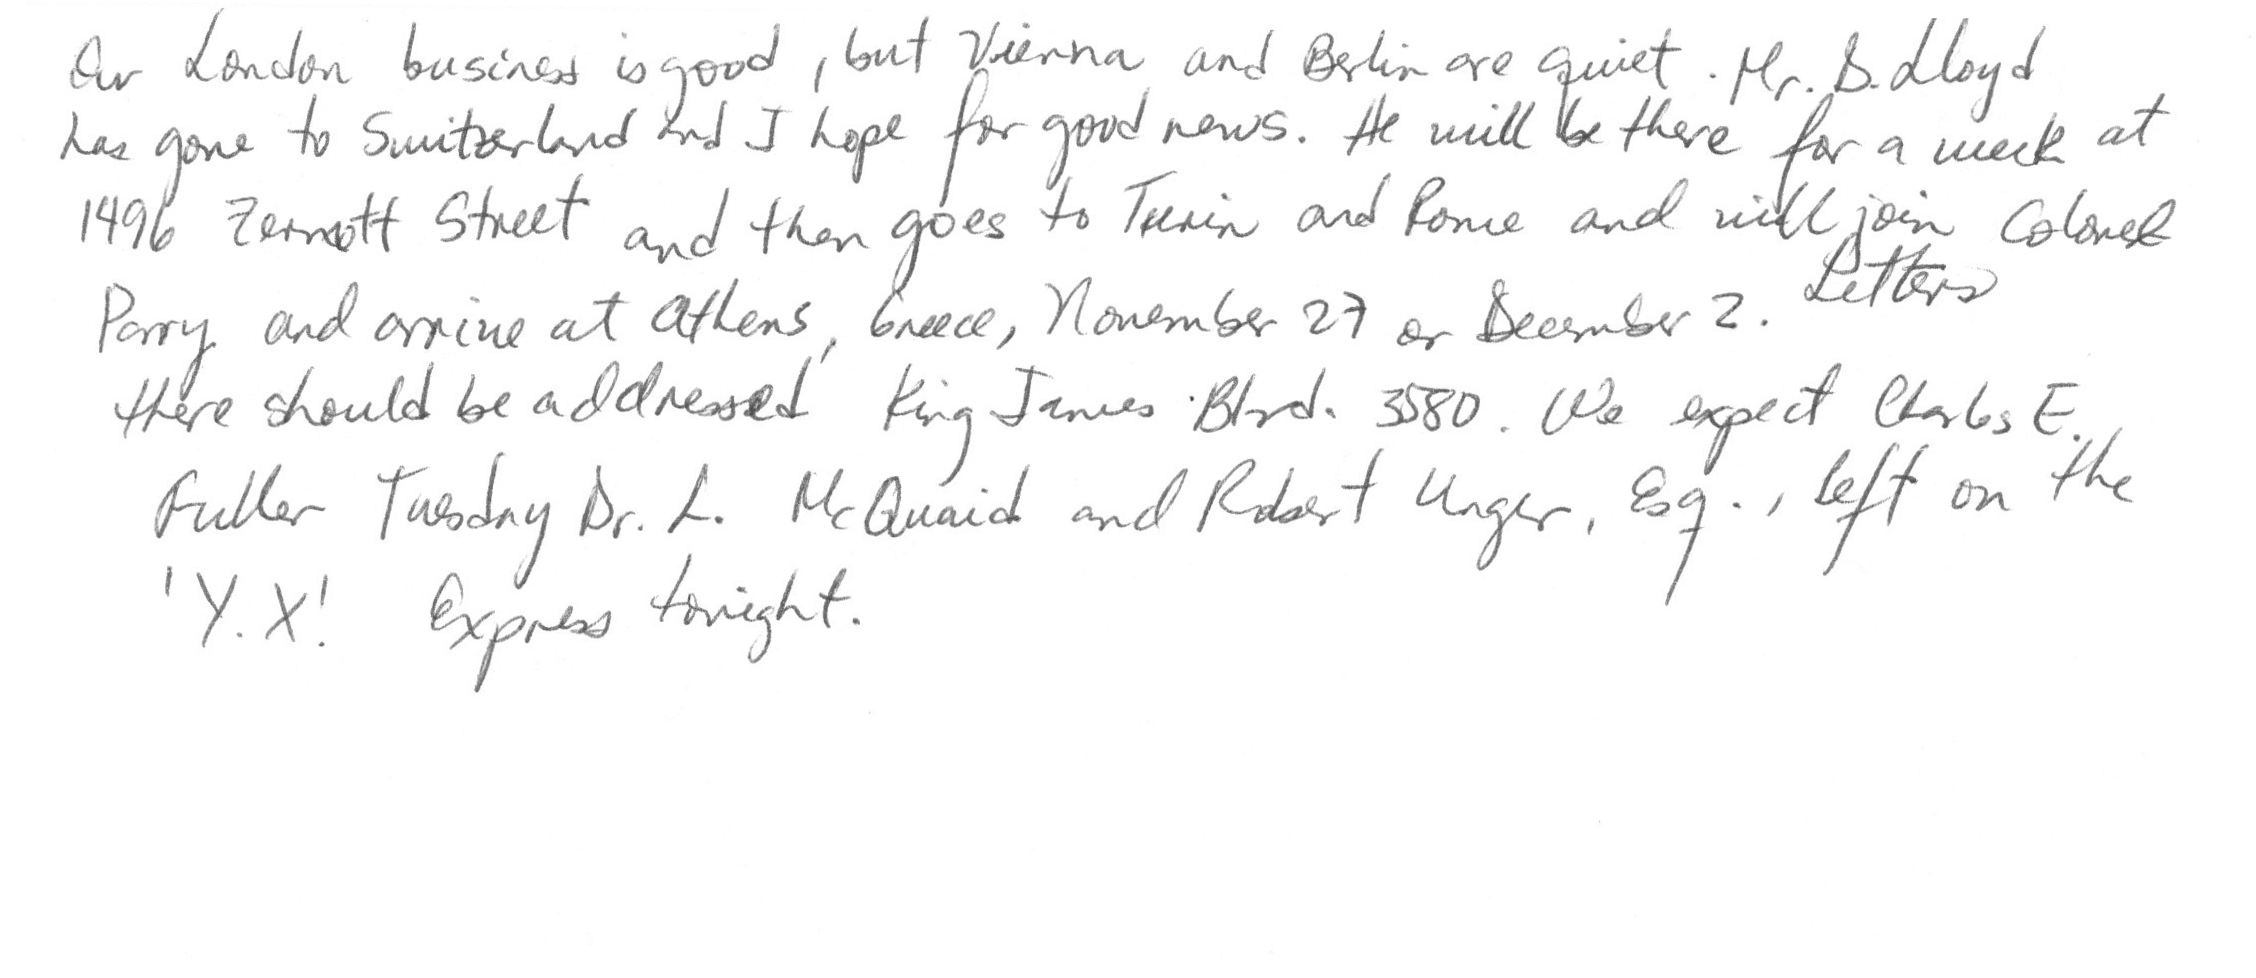 Our London business is good, but Vienna and Berlin are quiet. Mr. D. Lloyd
has gone to Switzerland and I hope for good news. He will be there for a week at
1496 Zermott Street and then goes to Turin and Rome and will join Colonel
Parry and arrive at Athens, Greece, November 27 or December 2. Letters
there should be addressed King James Blvd. 3580. We expect Charles E.
Fuller Tuesday Dr. L. McQuaid and Robert Unger, Esq., left on the
'Y.X.' Express tonight.